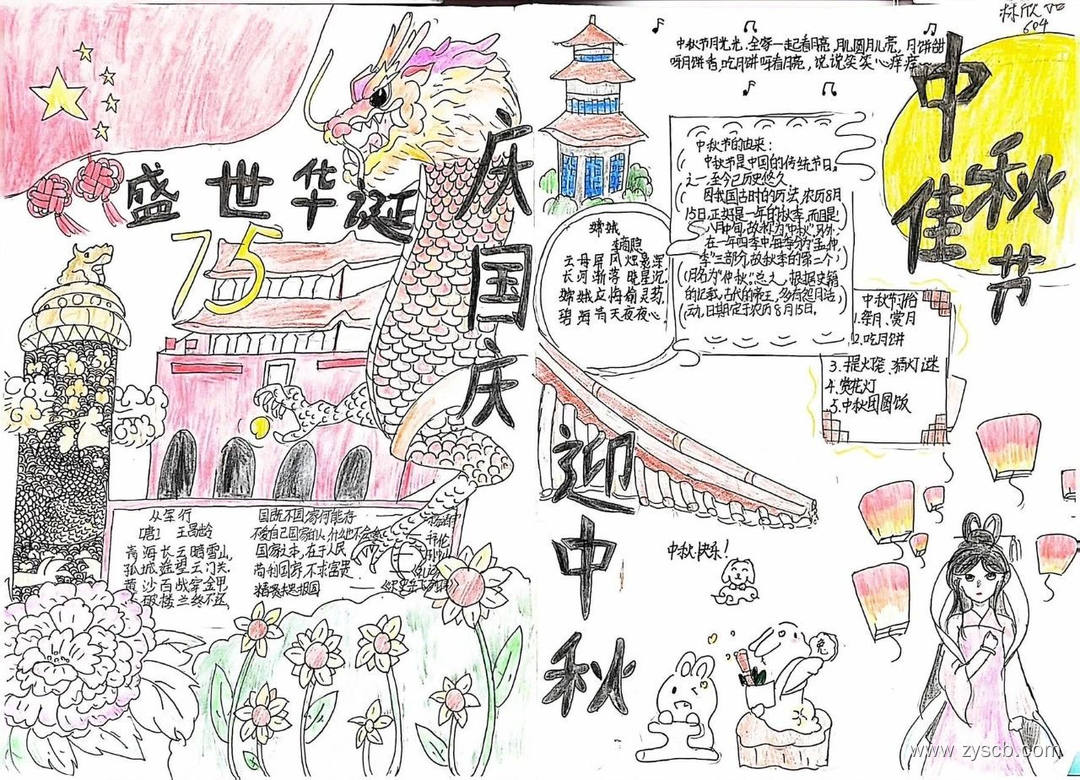 盛世华诞
75
庆国庆
迎中秋
从军行
[唐] 王昌龄
青海长云暗雪山,
孤城遥望玉门关.
黄沙百战穿金甲
破楼兰终不还.
国既不国家何能存
国家之本,在于人民
苟利国家,不求富贵
604
中秋节月光光,全家一起看月亮,月儿圆月儿亮,月饼甜
呀月饼香,吃月饼呀看月亮,说说笑笑心痒痒
中秋佳节
中秋节的由来:
中秋节是中国的传统节日,
之一,至今已历史悠久
因我国古时的历法,农历8月
15日,正好是一年的秋季,而且是
八月中间,故称为"中秋".另外,
在一年四季中每季分为"孟,仲,
季"三部分,故秋季的第二个
月名为"仲秋".总之,根据史籍
的记载,古代的帝王,多有祭月活
动,日期定于农历8月15日.
嫦娥
李商隐
云母屏风烛影深
长河渐落晓星沉,
嫦娥应悔偷灵药,
碧海青天夜夜心.
中秋节习俗
1.祭月、赏月
2.吃月饼
3.提灯笼、猜灯谜
4.赏花灯
5.中秋团圆饭
中秋快乐!
www.zyscb.com